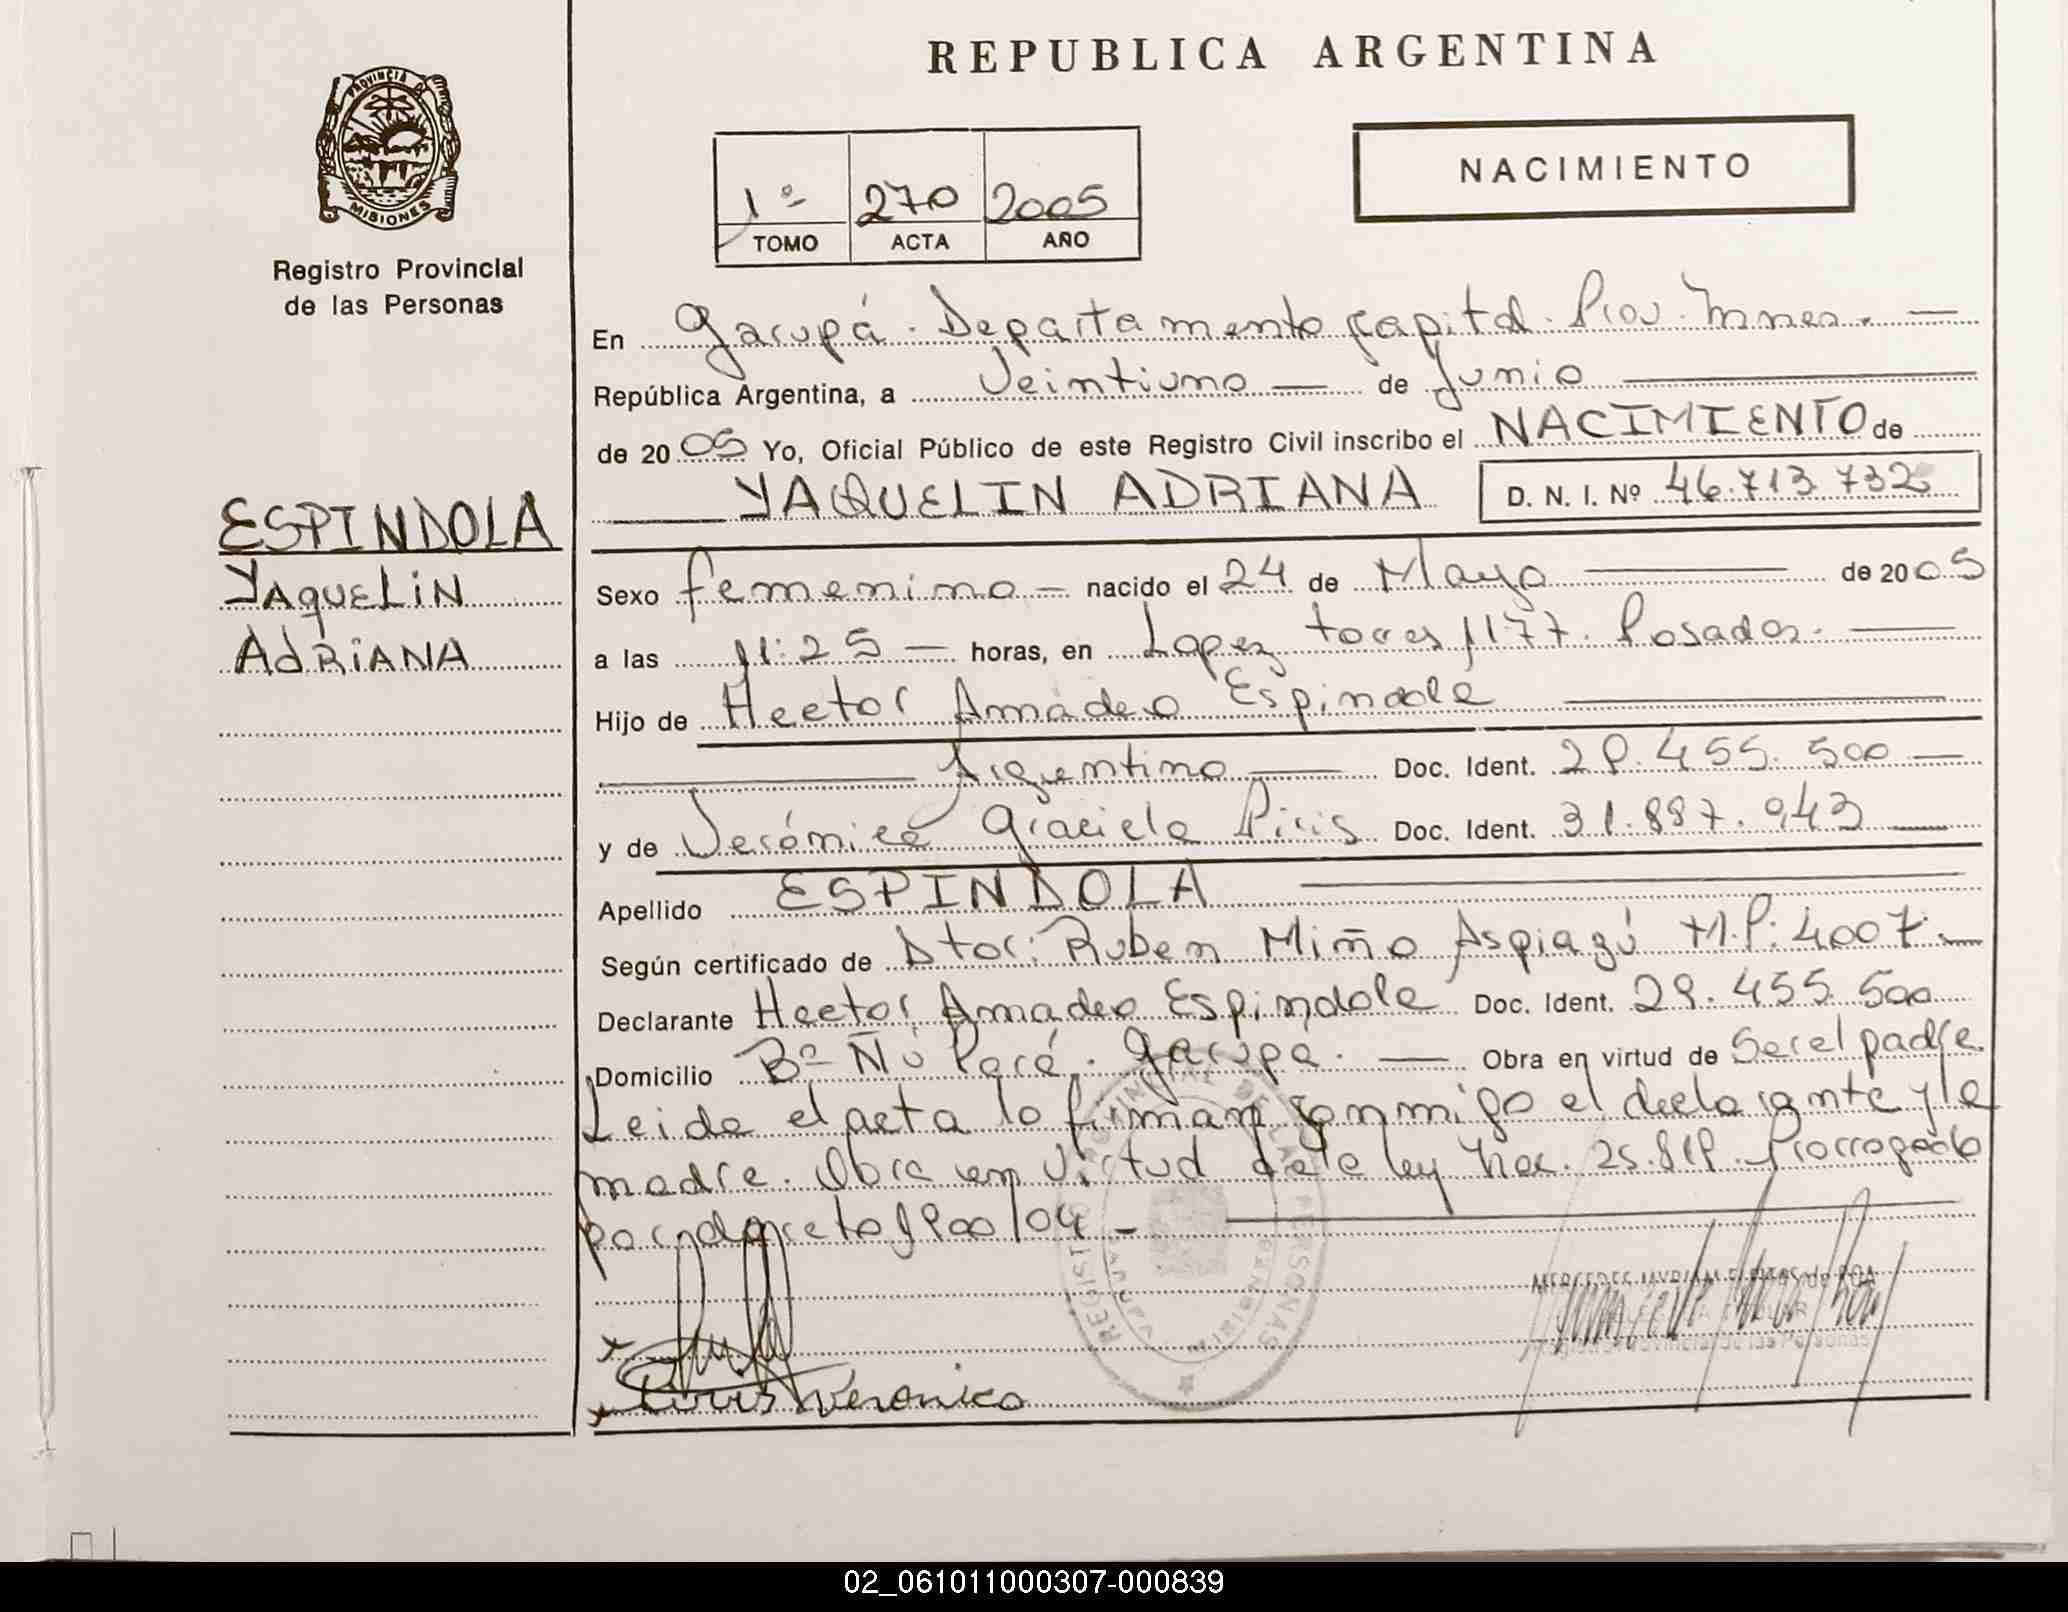 REPUBLICA ARGENTINA
PROVINCIA DE MISIONES
Registro Provincial
de las Personas
NACIMIENTO
1º 270 2005
TOMO ACTA AÑO
En Garupá. Departamento Capital. Prov. Mnes. —
República Argentina, a Veintiuno — de Junio
de 2005 Yo, Oficial Público de este Registro Civil inscribo el NACIMIENTO de
YAQUELIN ADRIANA D. N. I. Nº 46.713.732
ESPINDOLA
YAQUELIN
ADRIANA
Sexo femenino — nacido el 24 de Mayo — de 2005
a las 11:25 — horas, en Lopez torres 1177. Posadas. —
Hijo de Hector Amadeo Espindola
Argentino — Doc. Ident. 29.455.500 —
y de Verónica Graciela Piris Doc. Ident. 31.887.943 —
Apellido ESPINDOLA
Según certificado de Dtor: Ruben Miño Aspiazú M.P: 4007. —
Declarante Hector Amadeo Espindola Doc. Ident. 29.455.500
Domicilio Bº Ñú Porá. Garupa. — Obra en virtud de Ser el padre.
Leida el acta lo firman conmigo el declarante y la
madre. Obra en virtud de la ley Nac. 25.819. Prorrogado
por decreto 1900/04 —
REGISTRO PROVINCIAL DE LAS PERSONAS
MERCEDES MYRIAM de ROA
Registro Provincial de las Personas
Piris Veronica
02_061011000307-000839